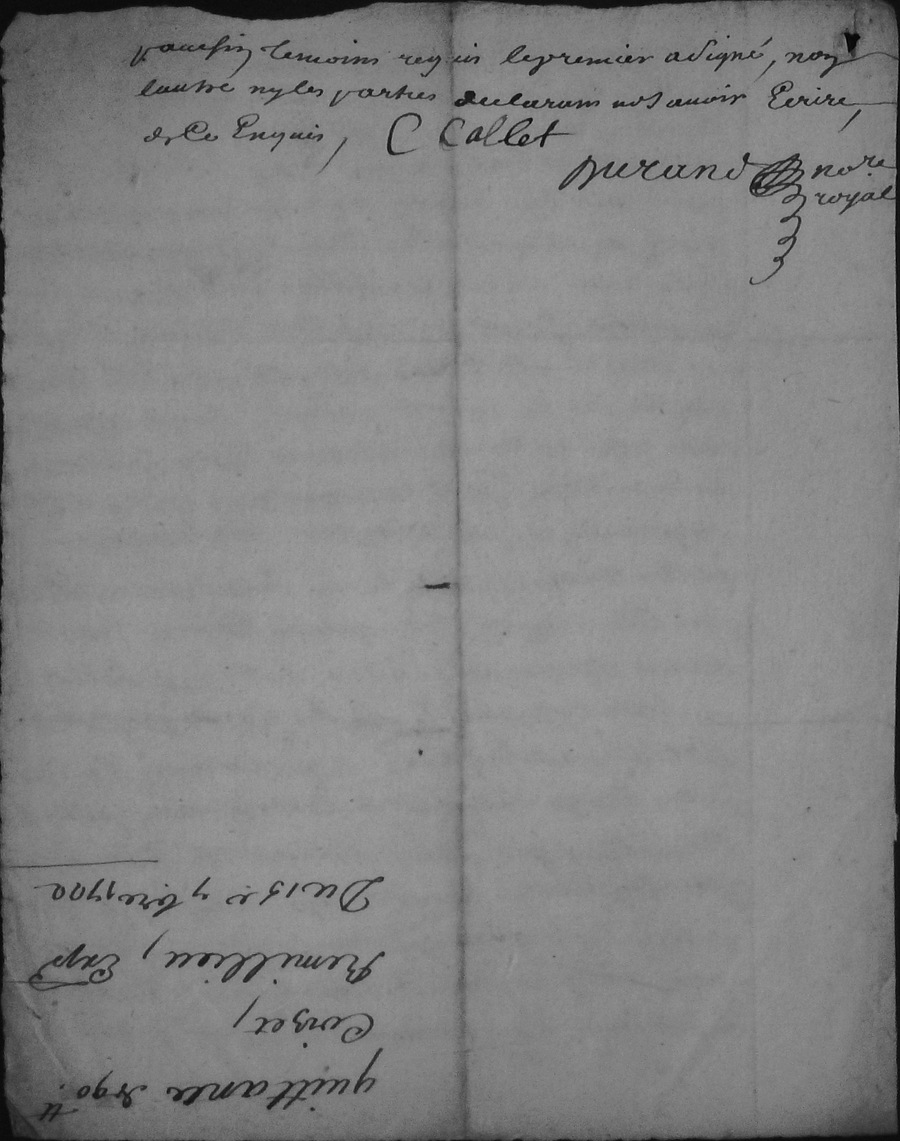 temoins requis le premier a signé, non
lautre ny les parties declarans ne savoir Ecrire,
de Ce Enquis, C Collet
Durand no.re
royal
quittance de 90.tt
Remillieu, Exp.d
Du 15.e 7bre 1702